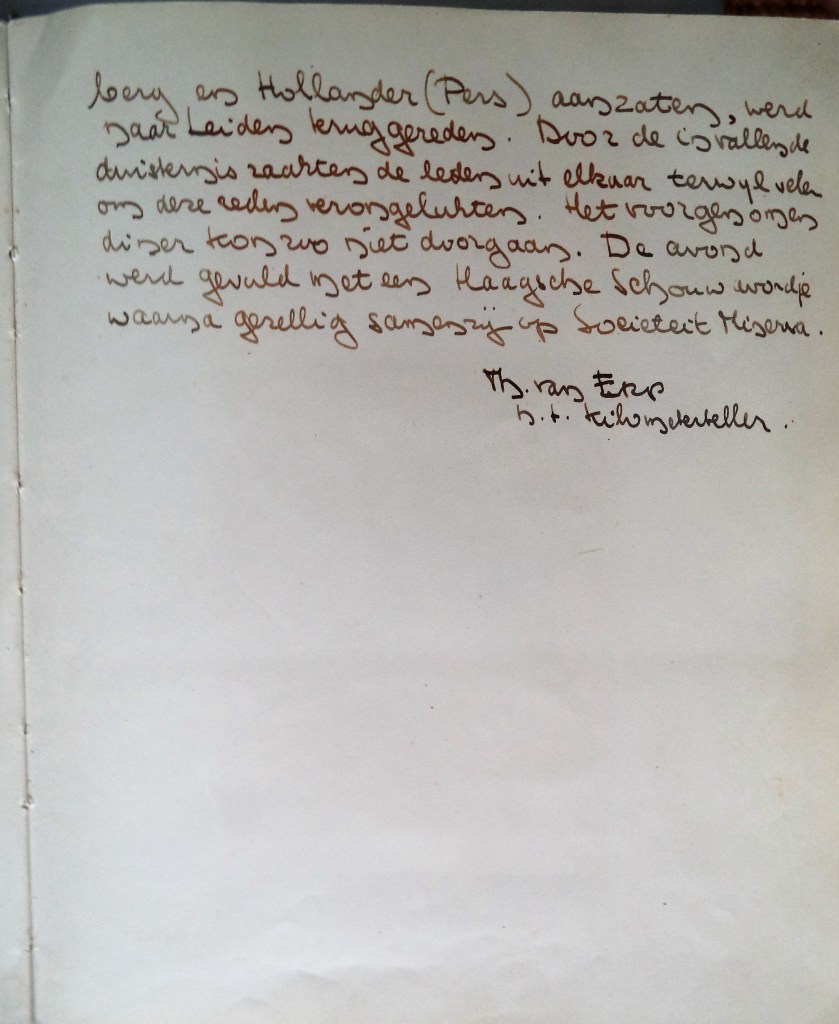 berg en Hollander (Pers) aanzaten, werd
naar Leiden teruggereden. Door de invallende
duisternis raakten de leden uit elkaar terwyl velen
om deze reden verongelukten. Het voorgenomen
diner kon zoo niet doorgaan. De avond
werd gevuld met een Haagsche Schouw avondje
waarna gezellig samenzij op Societeit Minerva.
Th. van Erp
h.t. kilometerteller.